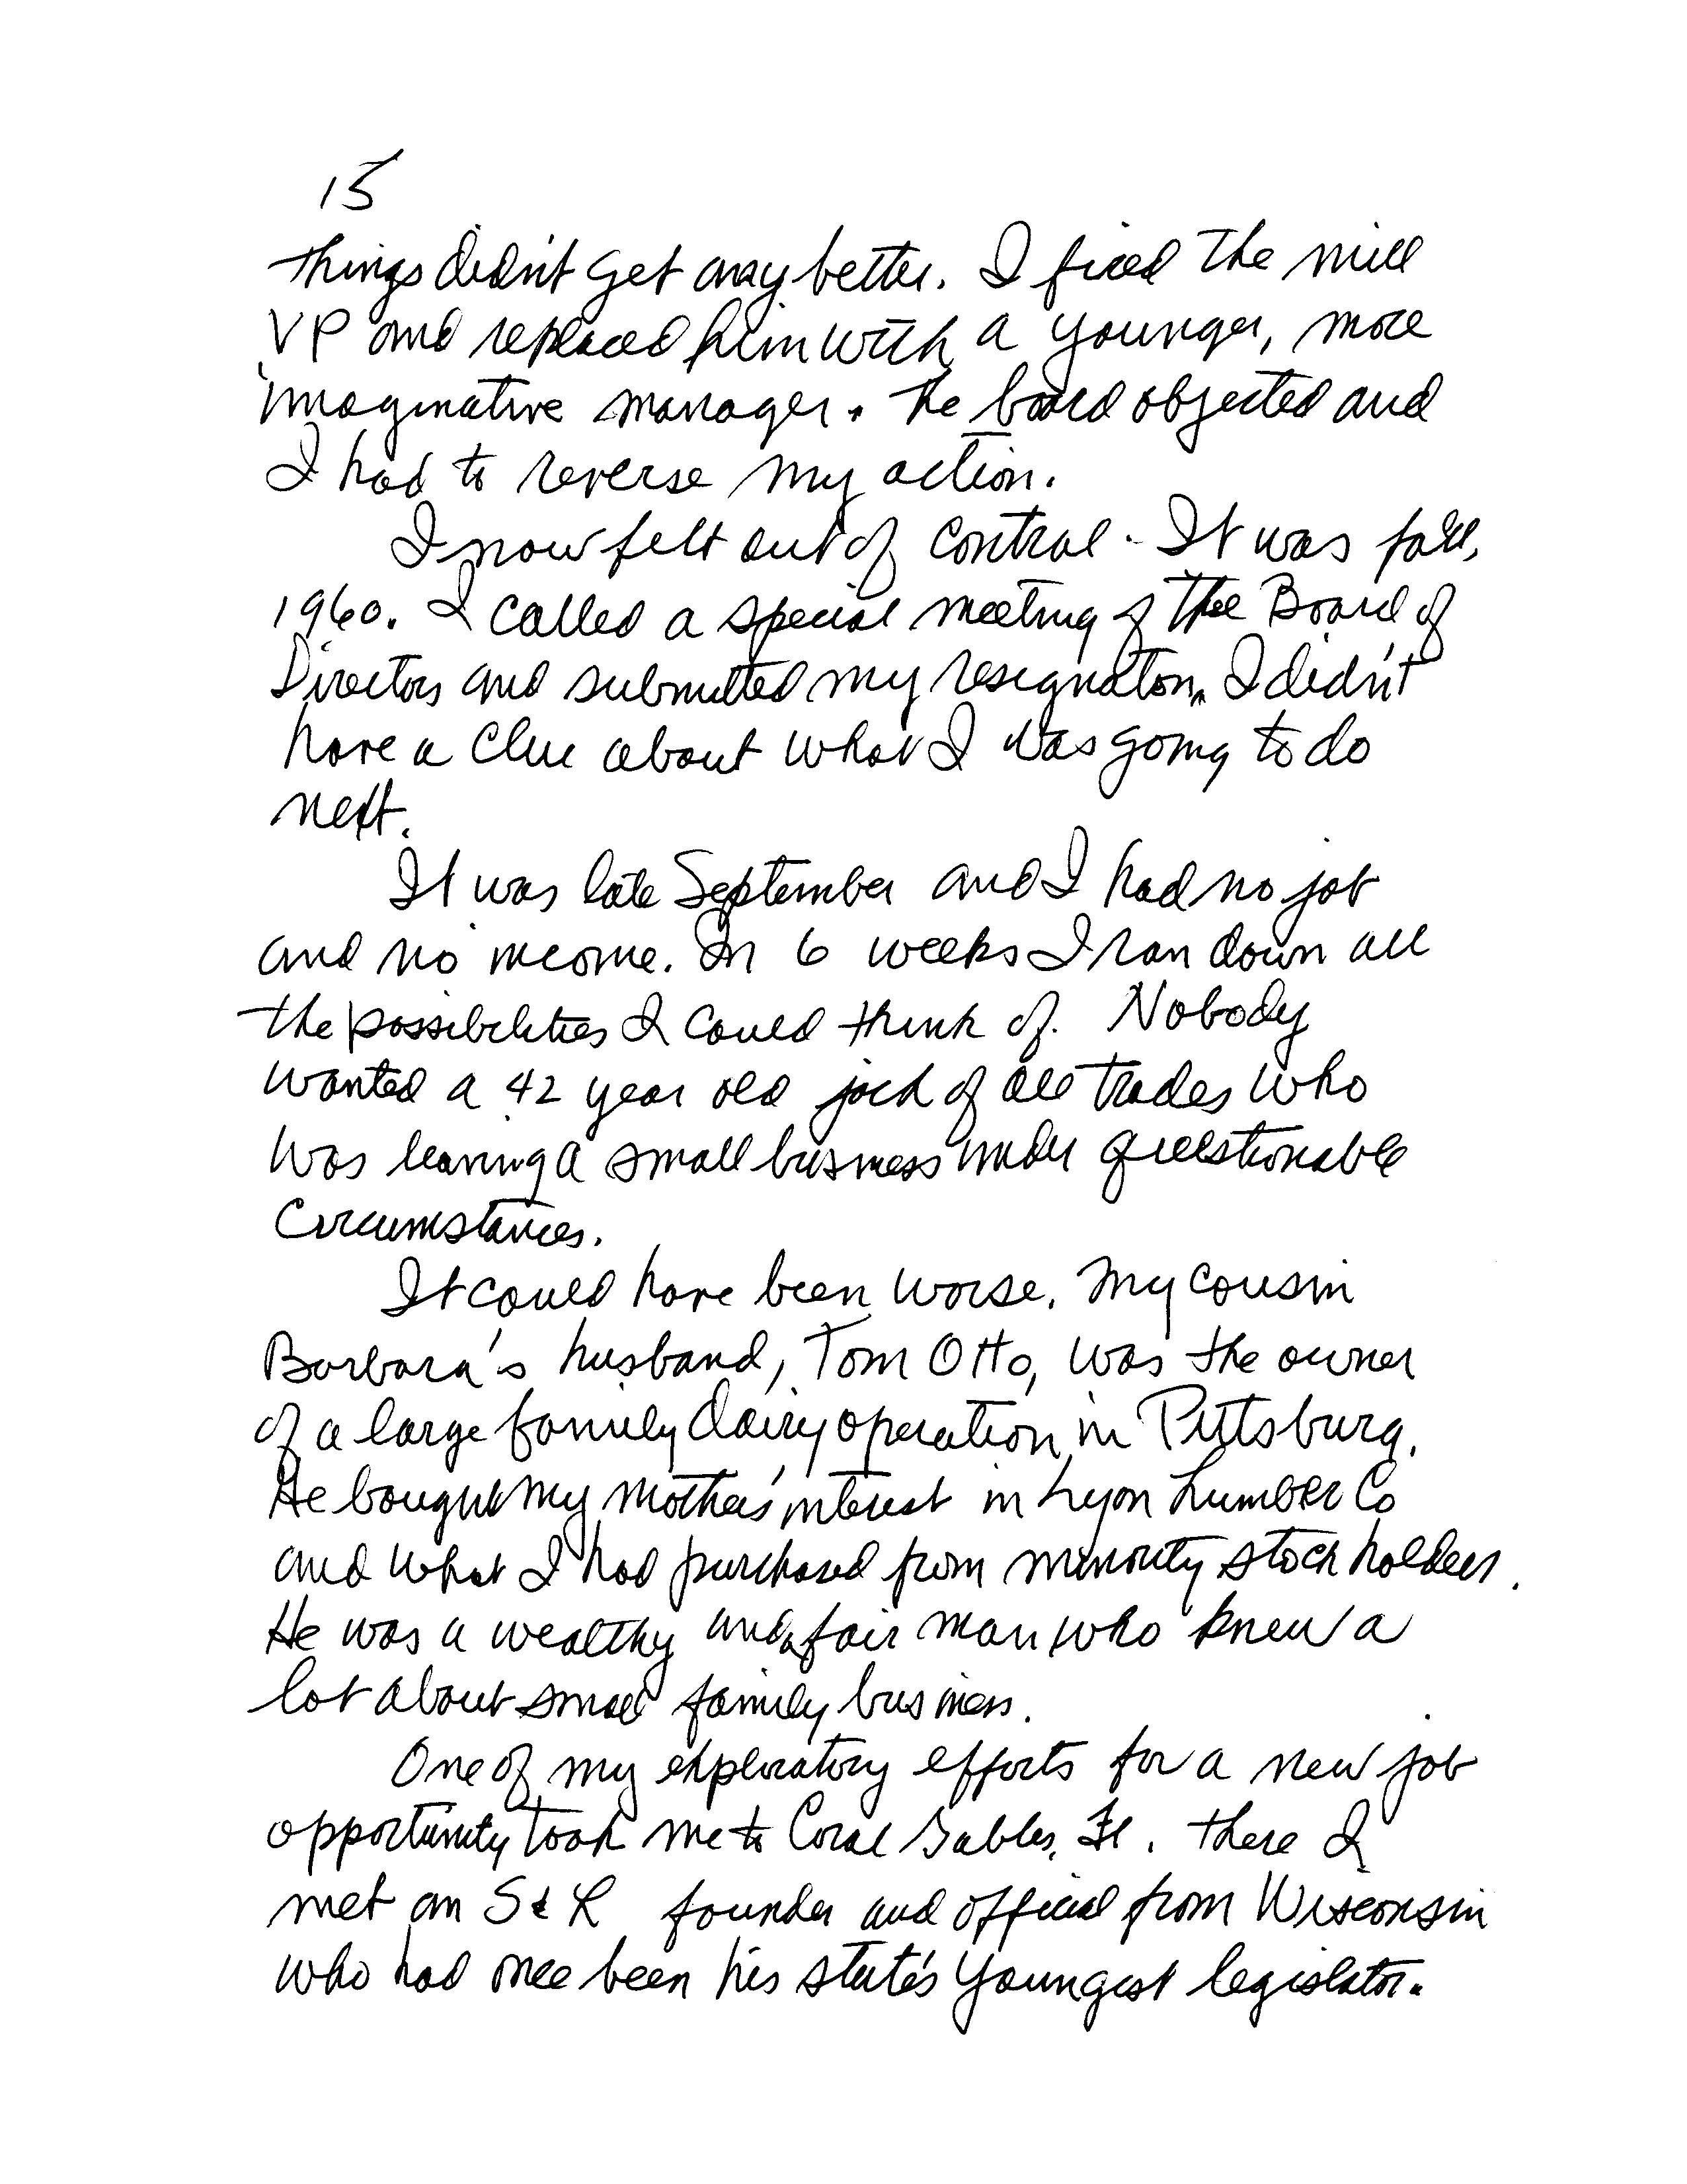 15
things didn't get any better. I fired the mill
VP and replaced him with a younger, more
imaginative manager. The board objected and
I had to reverse my action.
I now felt out of control. It was fall,
1960. I called a special meeting of the Board of
Directors and submitted my resignation. I didn't
have a clue about what I was going to do
next.
It was late September and I had no job
and no income. In 6 weeks I ran down all
the possibilities I could think of. Nobody
wanted a 42 year old jack of all trades who
was leaving a small business under questionable
circumstances.
It could have been worse. My cousin
Barbara's husband, Tom Otto, was the owner
of a large family dairy operation in Pittsburg.
He bought my mother's interest in Lyon Lumber Co
and what I had purchased from minority stock holders.
He was a wealthy and fair man who knew a
lot about small family business.
One of my exploratory efforts for a new job
opportunity took me to Coral Gables, Fl. There I
met an S & L founder and official from Wisconsin
who had once been his state's youngest legislator.